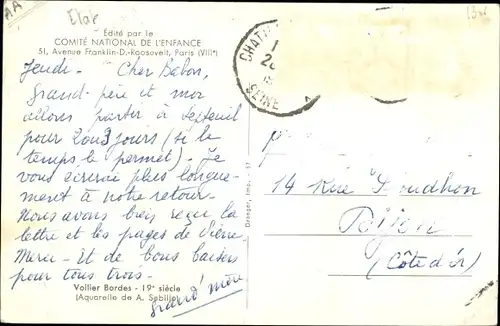 Édité par le
COMITÉ NATIONAL DE L'ENFANCE
51, Avenue Franklin-D.-Roosevelt, Paris (VIIIe)
Jeudi - Cher
Grand-père et moi
allons partir à Septeuil
pour 2 ou 3 jours (si le
temps le permet). Je
vous écrirai plus longue-
ment à notre retour.
Nous avons bien reçu la
lettre et les pages de Pierre
Merci - Et de bons baisers
pour tous trois.
Grand'mère
Voilier Bordes - 19e siècle
(Aquarelle de A. Sébille)
SEINE
Draeger, Imp.
14 Rue Proudhon
Dijon
(Côte d'Or)